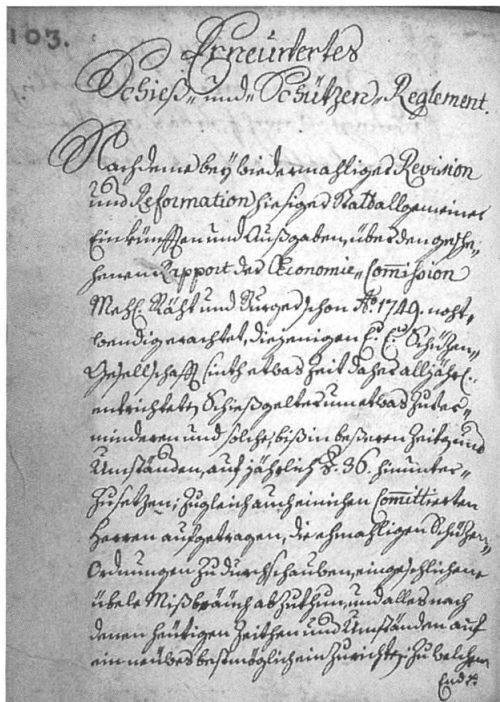 103.
Erneüertes
Schieß- und Schützen-Reglement.
Nachdeme bey widermahliger Revision
und Reformation hiesiger Statt allgemeiner
Einkünfften und Außgaben, über den gesche-
henen Rapport der Œconomie-Commission
MehH. Räht und Burger schon Aº. 1749. noht-
wendig erachtet, diejenigen E. E. Schützen-
Gesellschafft sinth etwas Zeit daher alljährl.
entrichtete Schießgelter um etwas zu ver-
minderen und solche, biß in beßeren Zeiten und
Umständen, auf jährlich 36. hinunter-
zusetzen; zugleich auch einichen Committierten
Herren aufgetragen, die ehmahligen Schützen-
Ordnungen zu durchschauen, eingeschlichene
übele Mißbräuch abzuthun, und alles nach
denen heütigen Zeithen und Umständen auf
ein neües bestmöglich einzurichten; zu welchem
End